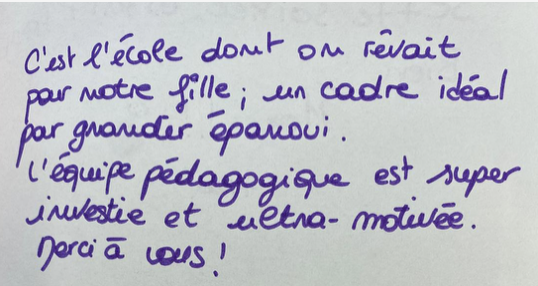 C'est l'école dont on rêvait
pour notre fille ; un cadre idéal
par grandir épanoui.
L'équipe pédagogique est super
investie et ultra-motivée.
Merci à vous !